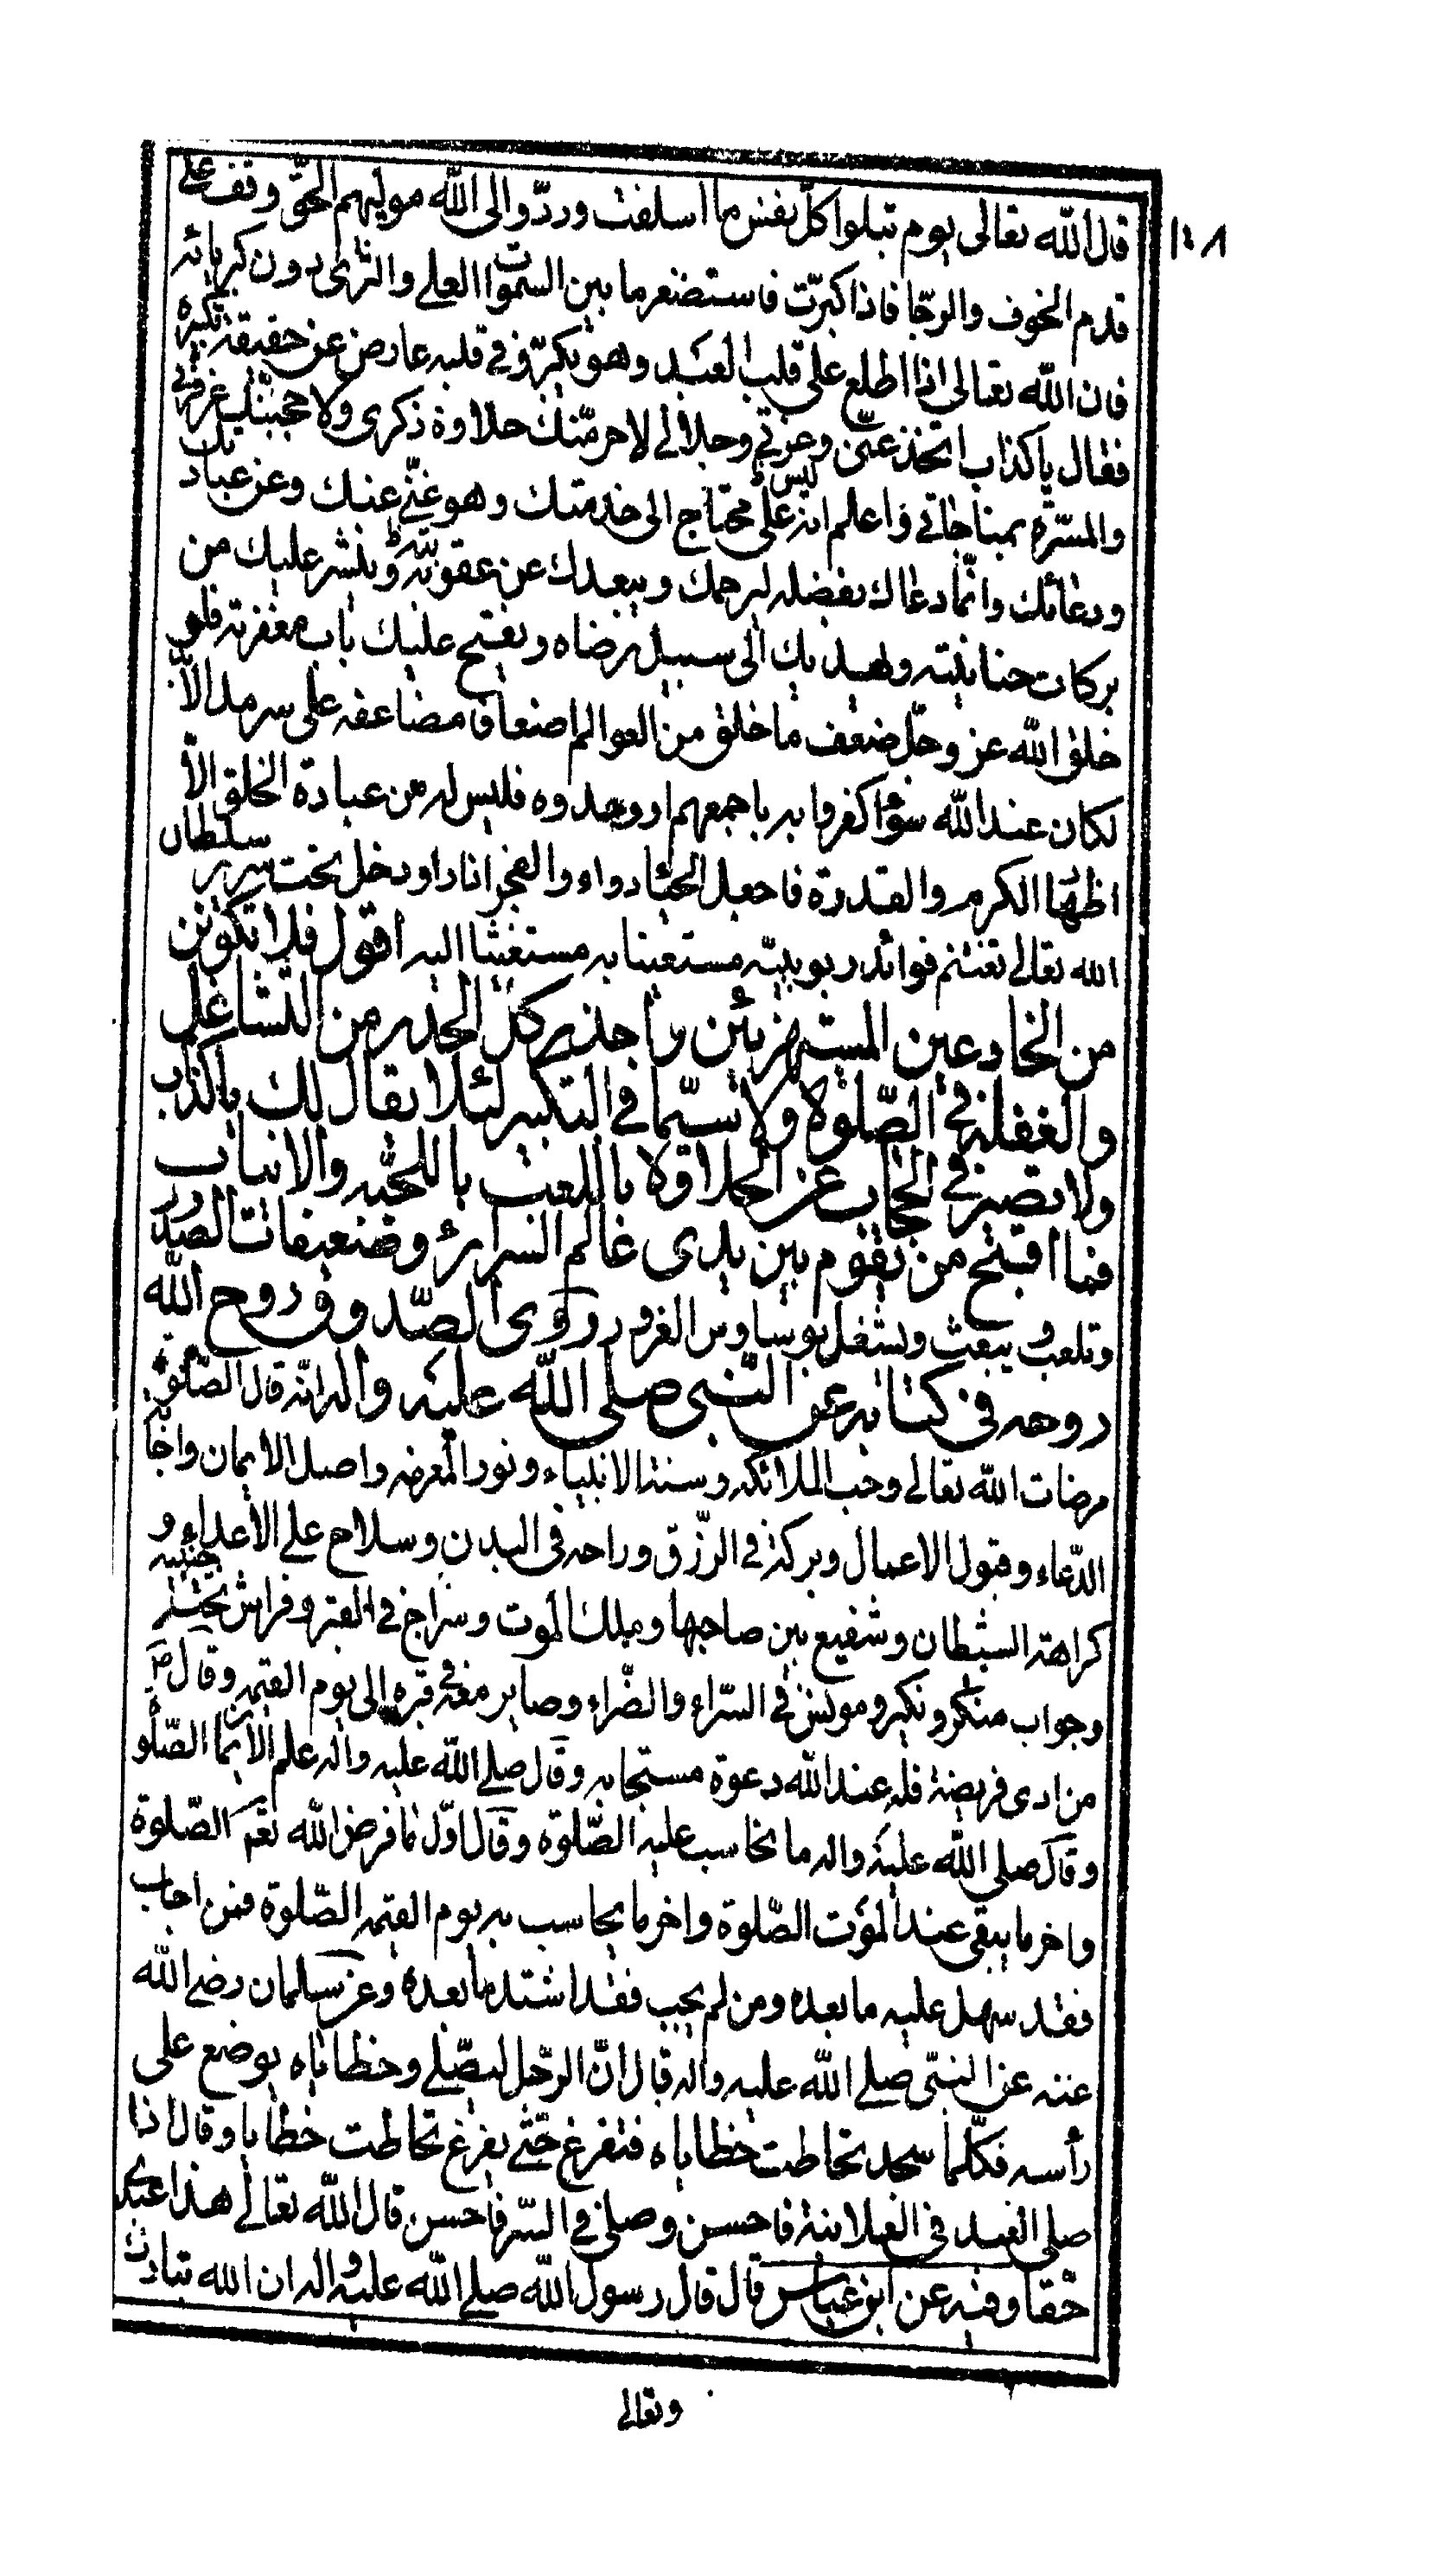 ١٠٨
قال الله تعالى يوم تبلوا كل نفس ما اسلفت وردّوا الى الله موليهم الحق وقف على
قدم الخوف والرجا فاذا كبرّت فاستصغر ما بين السموات العلى والثرى دون كبريائه
فان الله تعالى اذا اطلع على قلب العبد وهو يكبّر وفي قلبه عارض عن حقيقة تكبيره
فقال يا كذاب اتخدعنى وعزتي وجلالي لاحرمنّك حلاوة ذكرى ولاحجبنّك عن قربي
والمسرّة بمناجاتي واعلم انه ليس محتاج الى خدمتك وهو غنّي عنك وعن عبادتك
ودعائك وانّما دعاك بفضله ليرحمك ويبعدك عن عقوبته وينشر عليك من
بركات حنانيته ويهديك الى سبيل رضاه ويفتح عليك باب مغفرته فلو
خلق الله عز وجلّ ضعف ما خلق من العوالم اضعافا مضاعفه على سرمد الأبد
لكان عند الله سواء كفروا به باجمعهم او وحدوه فليس له من عبادة الخلق الاّ
اظهار الكرم والقدرة فاجعل الحياء رداء والعجز ازارا وادخل تحت سرير سلطان
الله تعالى تغتنم فوائد ربوبيته مستعينا به مستغيثا اليه اقول فلا تكونن
من الخادعين المستهزئين واحذر كل الحذر من التشاغل
والغفلة في الصّلوة ولا سيّما في التكبير لئلا يقال لك يا كذّاب
ولا تصير في الحجاب عن الحلاوة باللعب باللحيه والانياب
فما اقبح من يقوم بين يدى عالم السرائر وضعيفات الصدور
وتلعب ويبعث ويشغل بوساوس الغرور روى الصّدوق روح الله
روحه في كتابه عن النّبى صلى الله عليه واله انه قال الصّلوة
مرضات الله تعالى وحب الملائكه وسنة الانبياء ونور المعرفه واصل الايمان واجابة
الدّعاء وقبول الاعمال وبركة في الرّزق وراحه في البدن وسلاح على الأعداء و
كراهة الشيطان وشفيع بين صاحبها وملك الموت وسراج في القبر وفراش تحت جنبيه
وجواب منكر ونكير ومونس في السّراء والضّراء وصاير معه في قبره الى يوم القيمه وقال ص
من ادى فريضة فله عند الله دعوة مستجابه وقال صلى الله عليه واله علم الايمان الصّلوة
وقال صلى الله عليه واله ما يحاسب عليه الصّلوة وقال اوّل ما فرض الله تعالى الصّلوة
واخر ما يبقى عند الموت الصّلوة واخر ما يحاسب به يوم القيمه الصّلوة فمن اجاب
فقد سهل عليه ما بعده ومن لم يجب فقد اشتد ما بعده وعن سلمان رضي الله
عنه عن النبيّ صلى الله عليه واله قال انّ الرّجل ليصّلي وخطاياه يوضع على
رأسه فكلّما سجد تحاطت خطاياه فتفرغ حتّى يفرغ تحاطت خطايا وقال اذا
صلى العبد في العلانية فاحسن وصلى في السّر فاحسن قال الله تعالى هذا عبدى
حقّا وفيه عن ابن عباس قال قال رسول الله صلى الله عليه واله ان الله تبارك
وتعالى